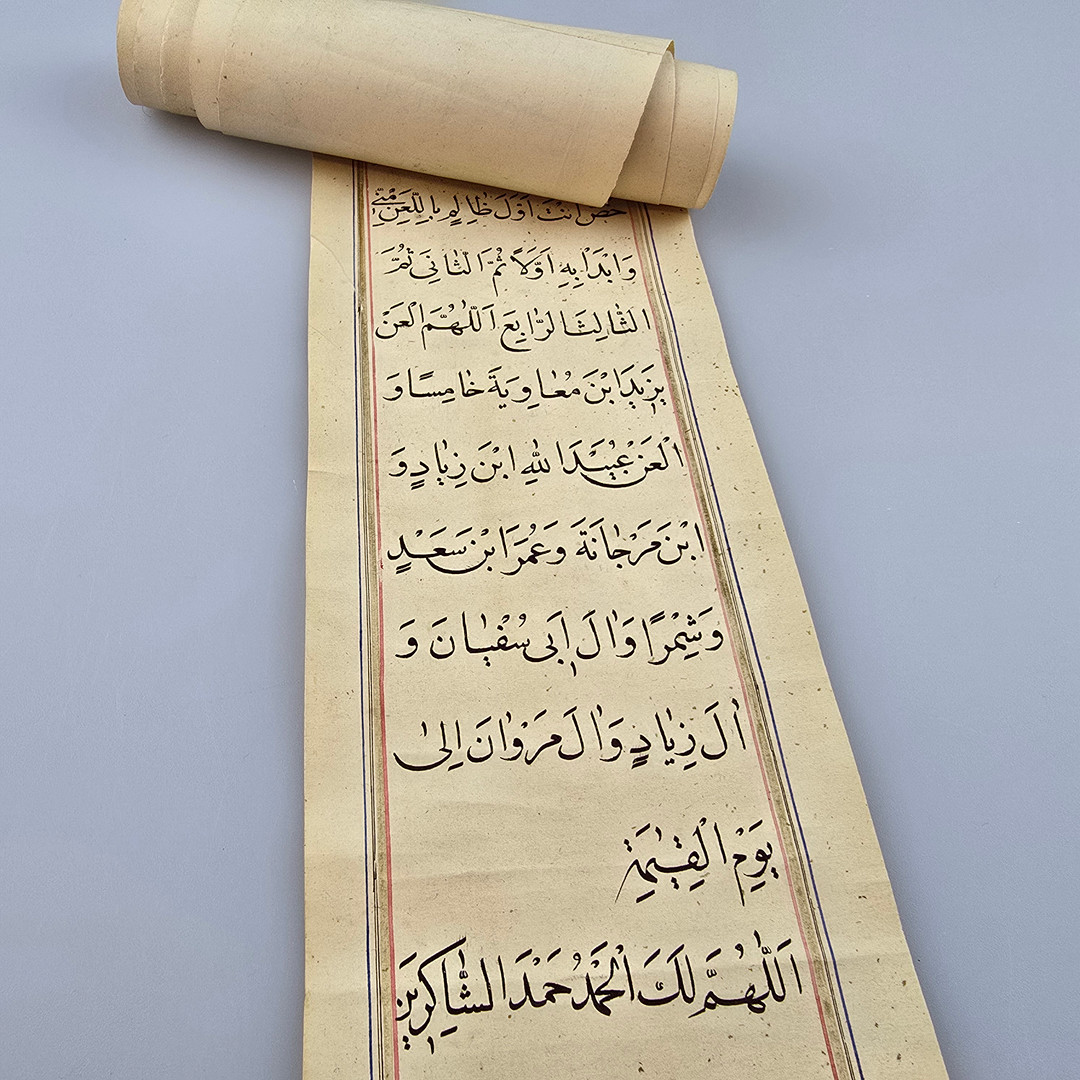 خُصَّ اَنْتَ اَوَّلَ ظَالِمٍ بِاللَّعْنِ مِنّٖى
وَابْدَاْ بِهٖ اَوَّلاً ثُمَّ الثَّانِىَ ثُمَّ
الثَّالِثَ الرَّابِعَ اَللّٰهُمَّ الْعَنْ
يَزٖيدَ ابْنَ مُعَاوِيَةَ خَامِسًا وَ
الْعَنْ عُبَيْدَ اللّٰهِ ابْنَ زِيَادٍ وَ
ابْنَ مَرْجَانَةَ وَعُمَرَ ابْنَ سَعَدٍ
وَشِمْرًا وَاٰلَ اَبٖى سُفْيَانَ وَ
اٰلَ زِيَادٍ وَاٰلَ مَرْوَانَ اِلىٰ
يَوْمِ الْقِيٰمَةِ
اَللّٰهُمَّ لَكَ الْحَمْدُ حَمْدَ الشَّاكِرٖينَ